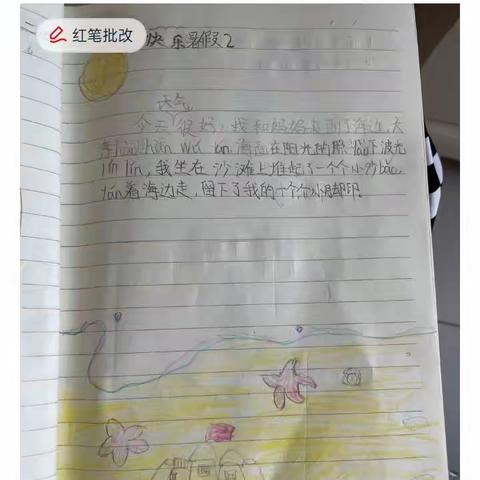 红笔批改
快乐暑假2
天气
今天很好,我和妈妈来到了海边,大
海 hào hàn wú yín,海面在阳光的照 yào 下波光
lín lín,我坐在沙滩上堆起了一个个小沙 bǎo,
yán 着海边走,留下了我的一个个小脚印。